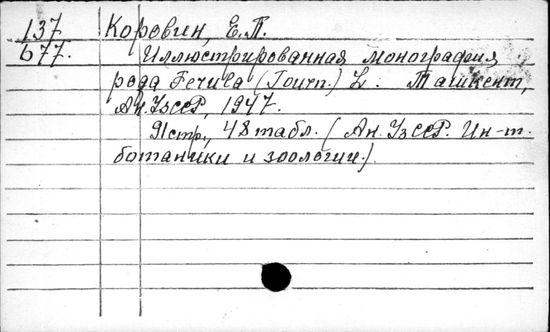 137 Коровин, Е.П.
677. Иллюстрированная монография
рода Ferula (Tourn.) L. Ташкент,
Ан. УзССР, 1947.
91стр., 48 табл. (Ан. УзССР. Ин-т.
ботаники и зоологии.)